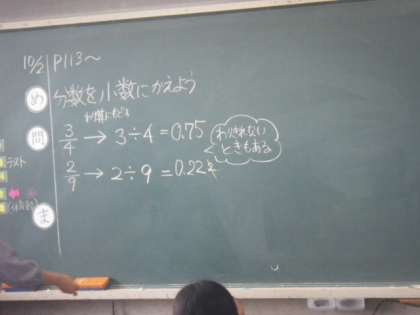 10/2 P113〜
め 分数を小数にかえよう
わり算にもどる
問 3/4 → 3÷4=0.75
わりきれない
ときもある
2/9 → 2÷9=0.22
テスト
ま